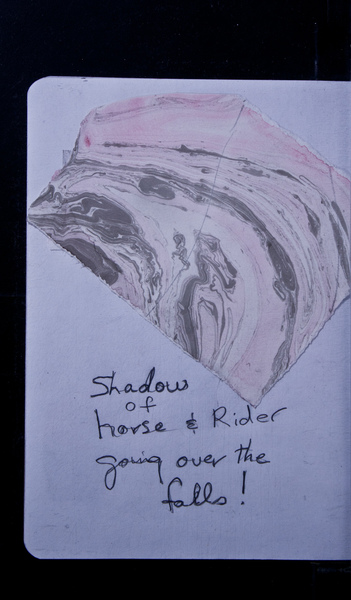 Shadow
of
horse & Rider
going over the
falls!